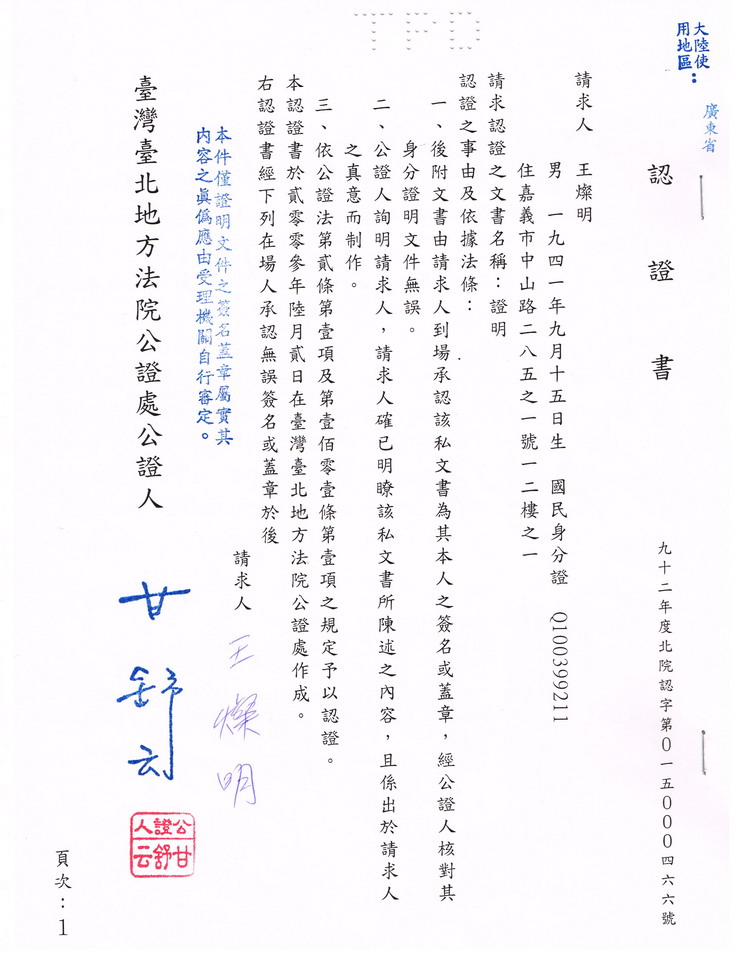 大陸使
用地區：
廣東省
認證書
九十二年度北院認字第0一五000四六六號
請求人　王燦明
男　一九四一年九月十五日生　國民身分證　Q100399211
住嘉義市中山路二八五之一號一二樓之一
請求認證之文書名稱：證明
認證之事由及依據法條：
一、後附文書由請求人到場承認該私文書為其本人之簽名或蓋章，經公證人核對其
身分證明文件無誤。
二、公證人詢明請求人，請求人確已明瞭該私文書所陳述之內容，且係出於請求人
之真意而制作。
三、依公證法第貳條第壹項及第壹佰零壹條第壹項之規定予以認證。
本認證書於貳零零參年陸月貳日在臺灣臺北地方法院公證處作成。
右認證書經下列在場人承認無誤簽名或蓋章於後
請求人　王燦明
本件僅證明文件之簽名蓋章屬實其
內容之真偽應由受理機關自行審定。
臺灣臺北地方法院公證處公證人　甘舒云
公證人
甘舒云
頁次：1
TPD